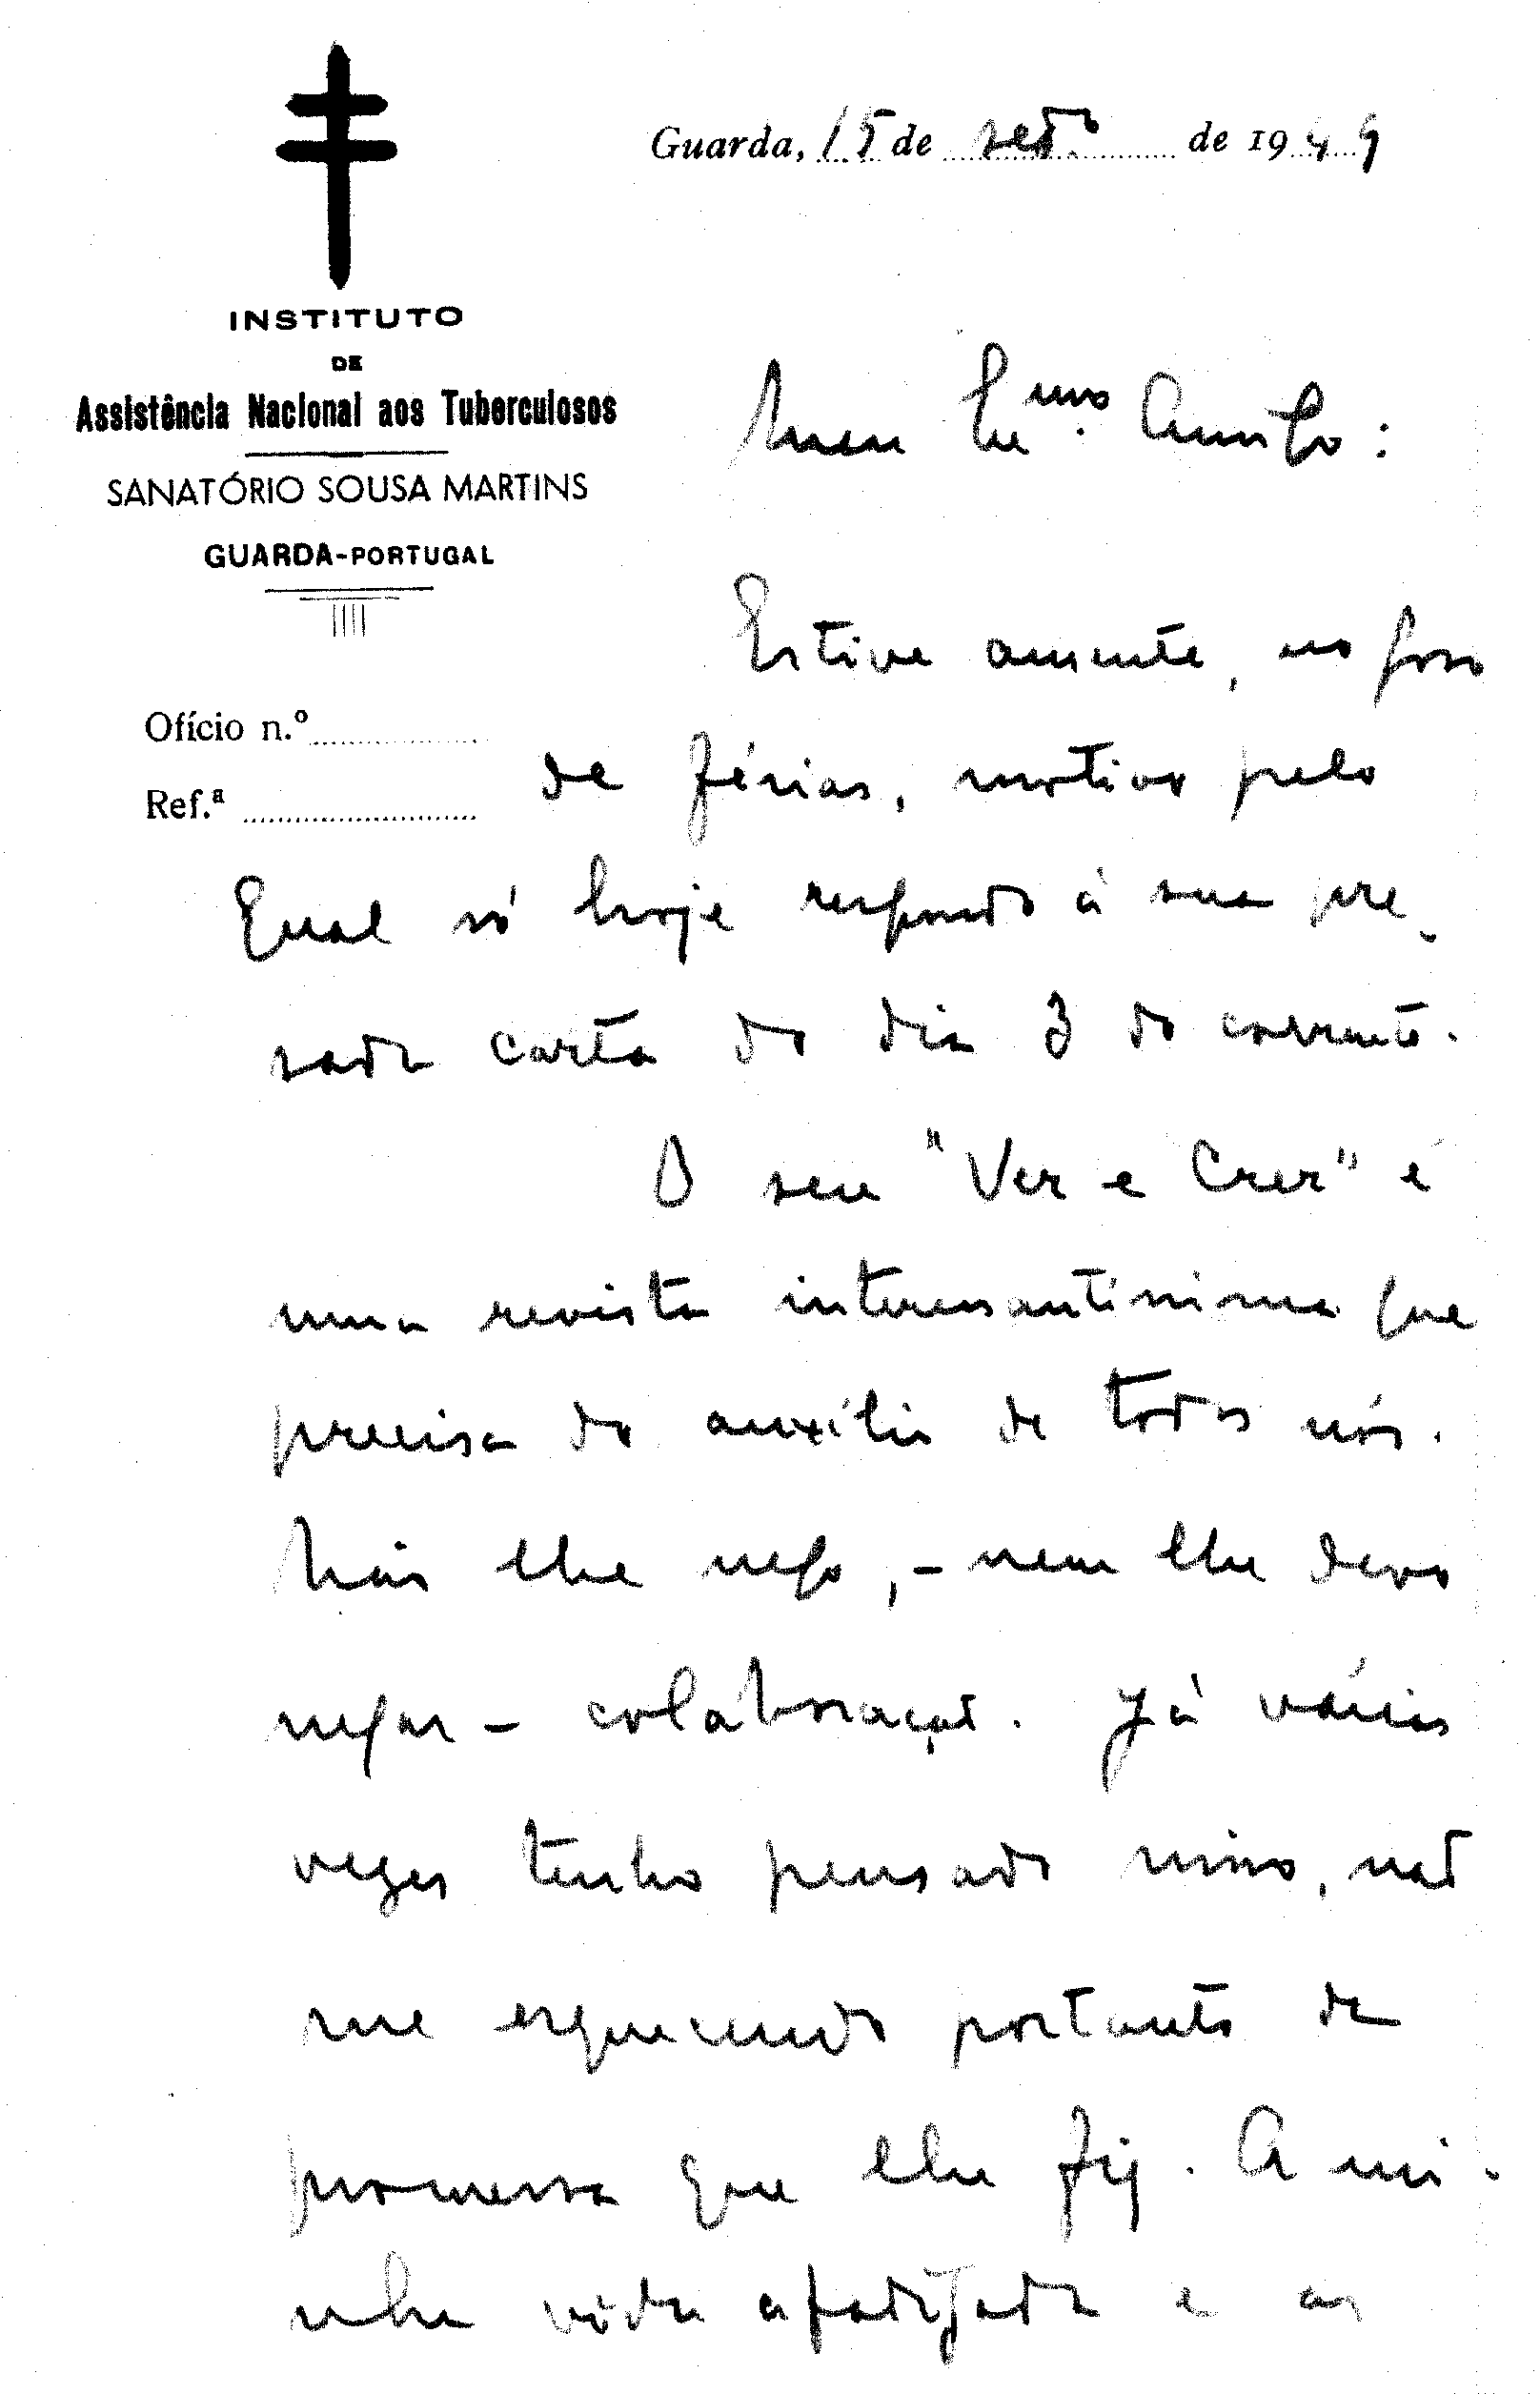 Guarda, 15 de setº. de 1949
INSTITUTO
DE
Assistência Nacional aos Tuberculosos
SANATÓRIO SOUSA MARTINS
GUARDA-PORTUGAL
Meu Amigo:
Estive ausente, no gozo
Ofício n.º
de férias, motivo pelo
Ref.ª
qual só hoje respondo à sua pre-
sada carta do dia 3 do corrente.
O seu "Ver e Crer" é
uma revista interessantíssima que
precisa do auxílio de todos nós.
Não lhe nego, - nem lhe devo
negar - colaboração. Já várias
vezes tenho pensado nisso, não
me esquecendo portanto da
promessa que lhe fiz. A mi-
nha vida afadigada e as